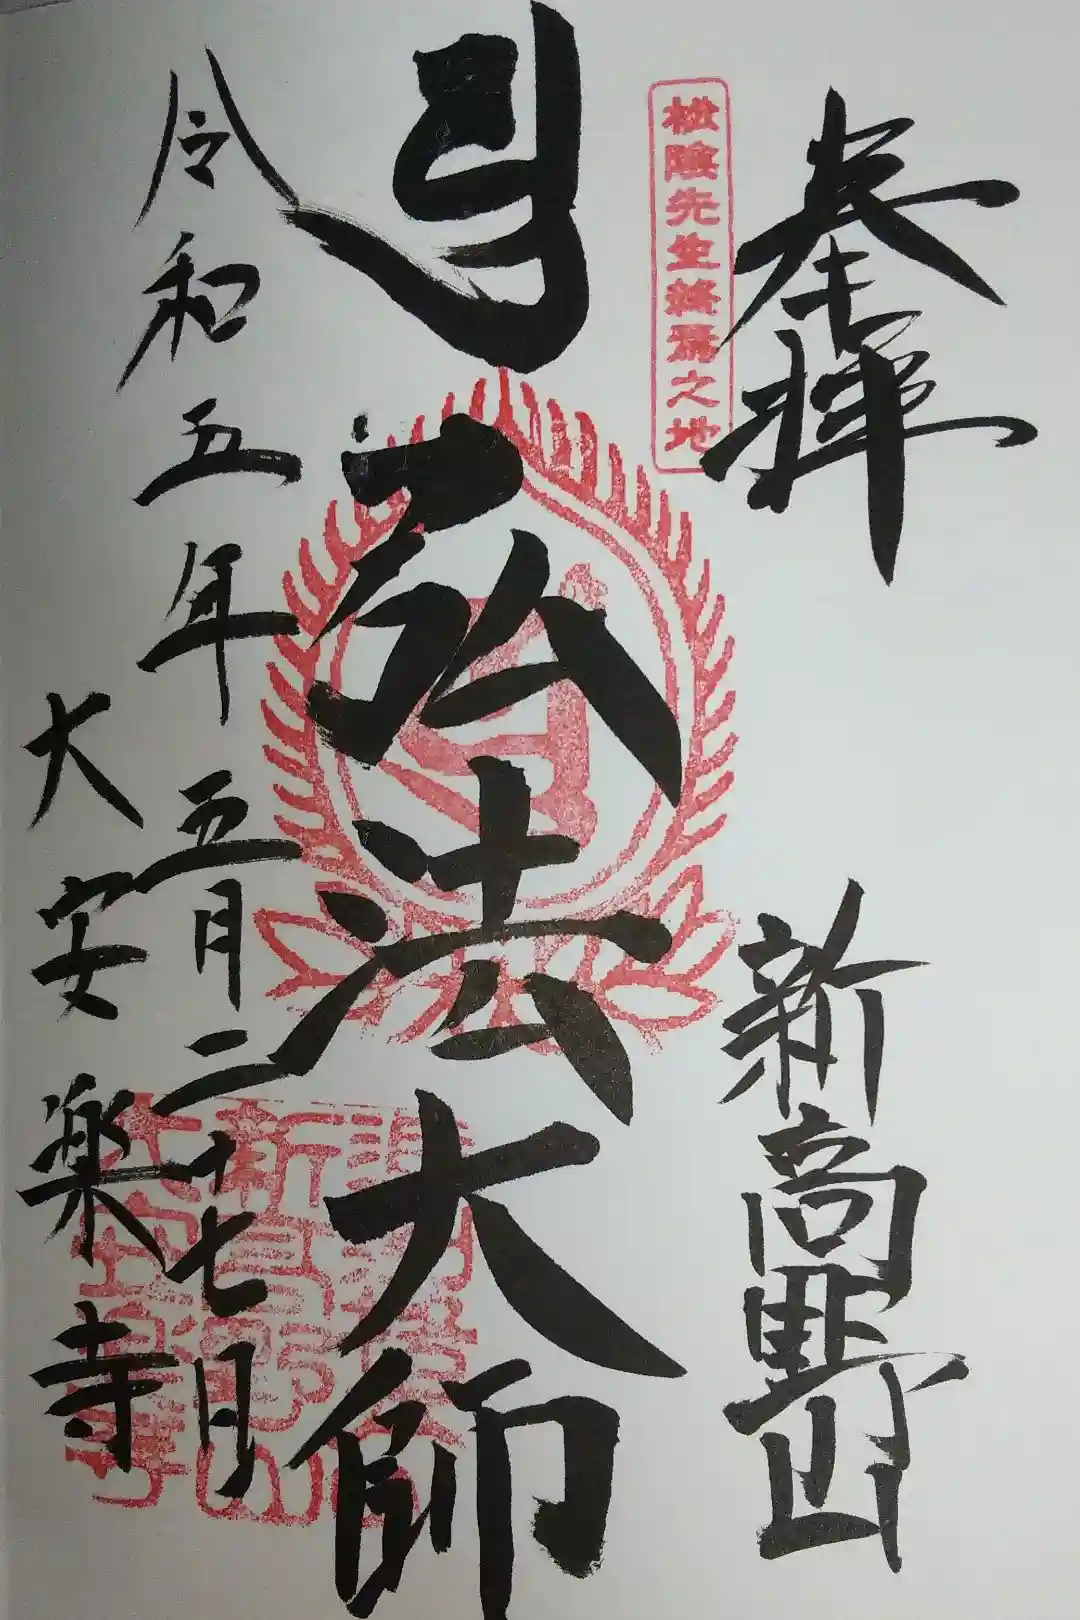 奉拝
新高野山
松陰先生終焉之地
弘法大師
令和五年五月二十七日
大安楽寺